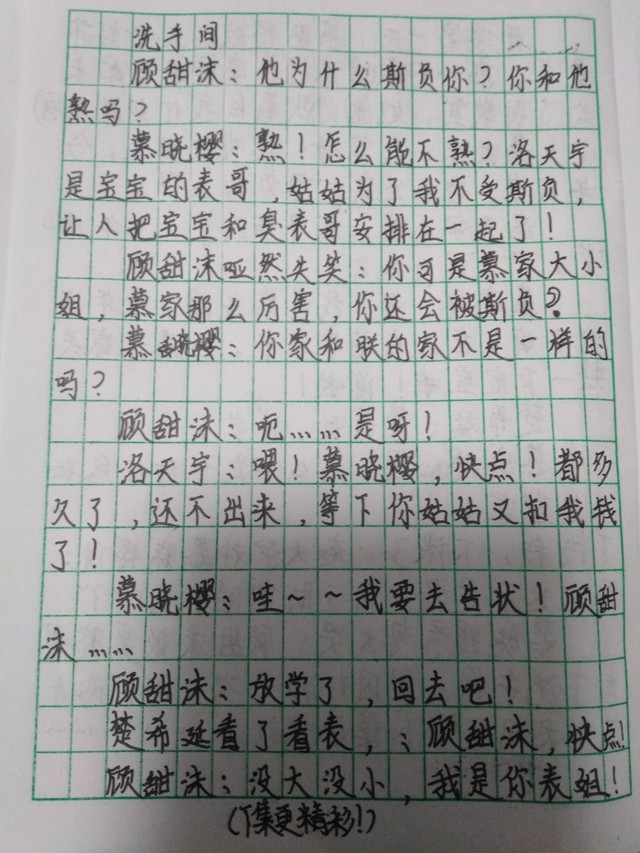 洗手间
顾甜沫：他为什么斯负你？你和他
熟吗？
慕晓樱：熟！怎么能不熟？洛天宇
是宝宝的表哥，姑姑为了我不受斯负，
让人把宝宝和臭表哥安排在一起了！
顾甜沫哑然失笑：你可是慕家大小
姐，慕家那么厉害，你还会被斯负？
慕晓樱：你家和朕的家不是一样的
吗？
顾甜沫：呃……是呀！
洛天宇：喂！慕晓樱，快点！都多
久了，还不出来，等下你姑姑又扣我钱
了！
慕晓樱：哇~~我要去告状！顾甜
沫……
顾甜沫：放学了，回去吧！
楚希延看了看表，：顾甜沫，快点！
顾甜沫：没大没小，我是你表姐！
(下集更精彩!)